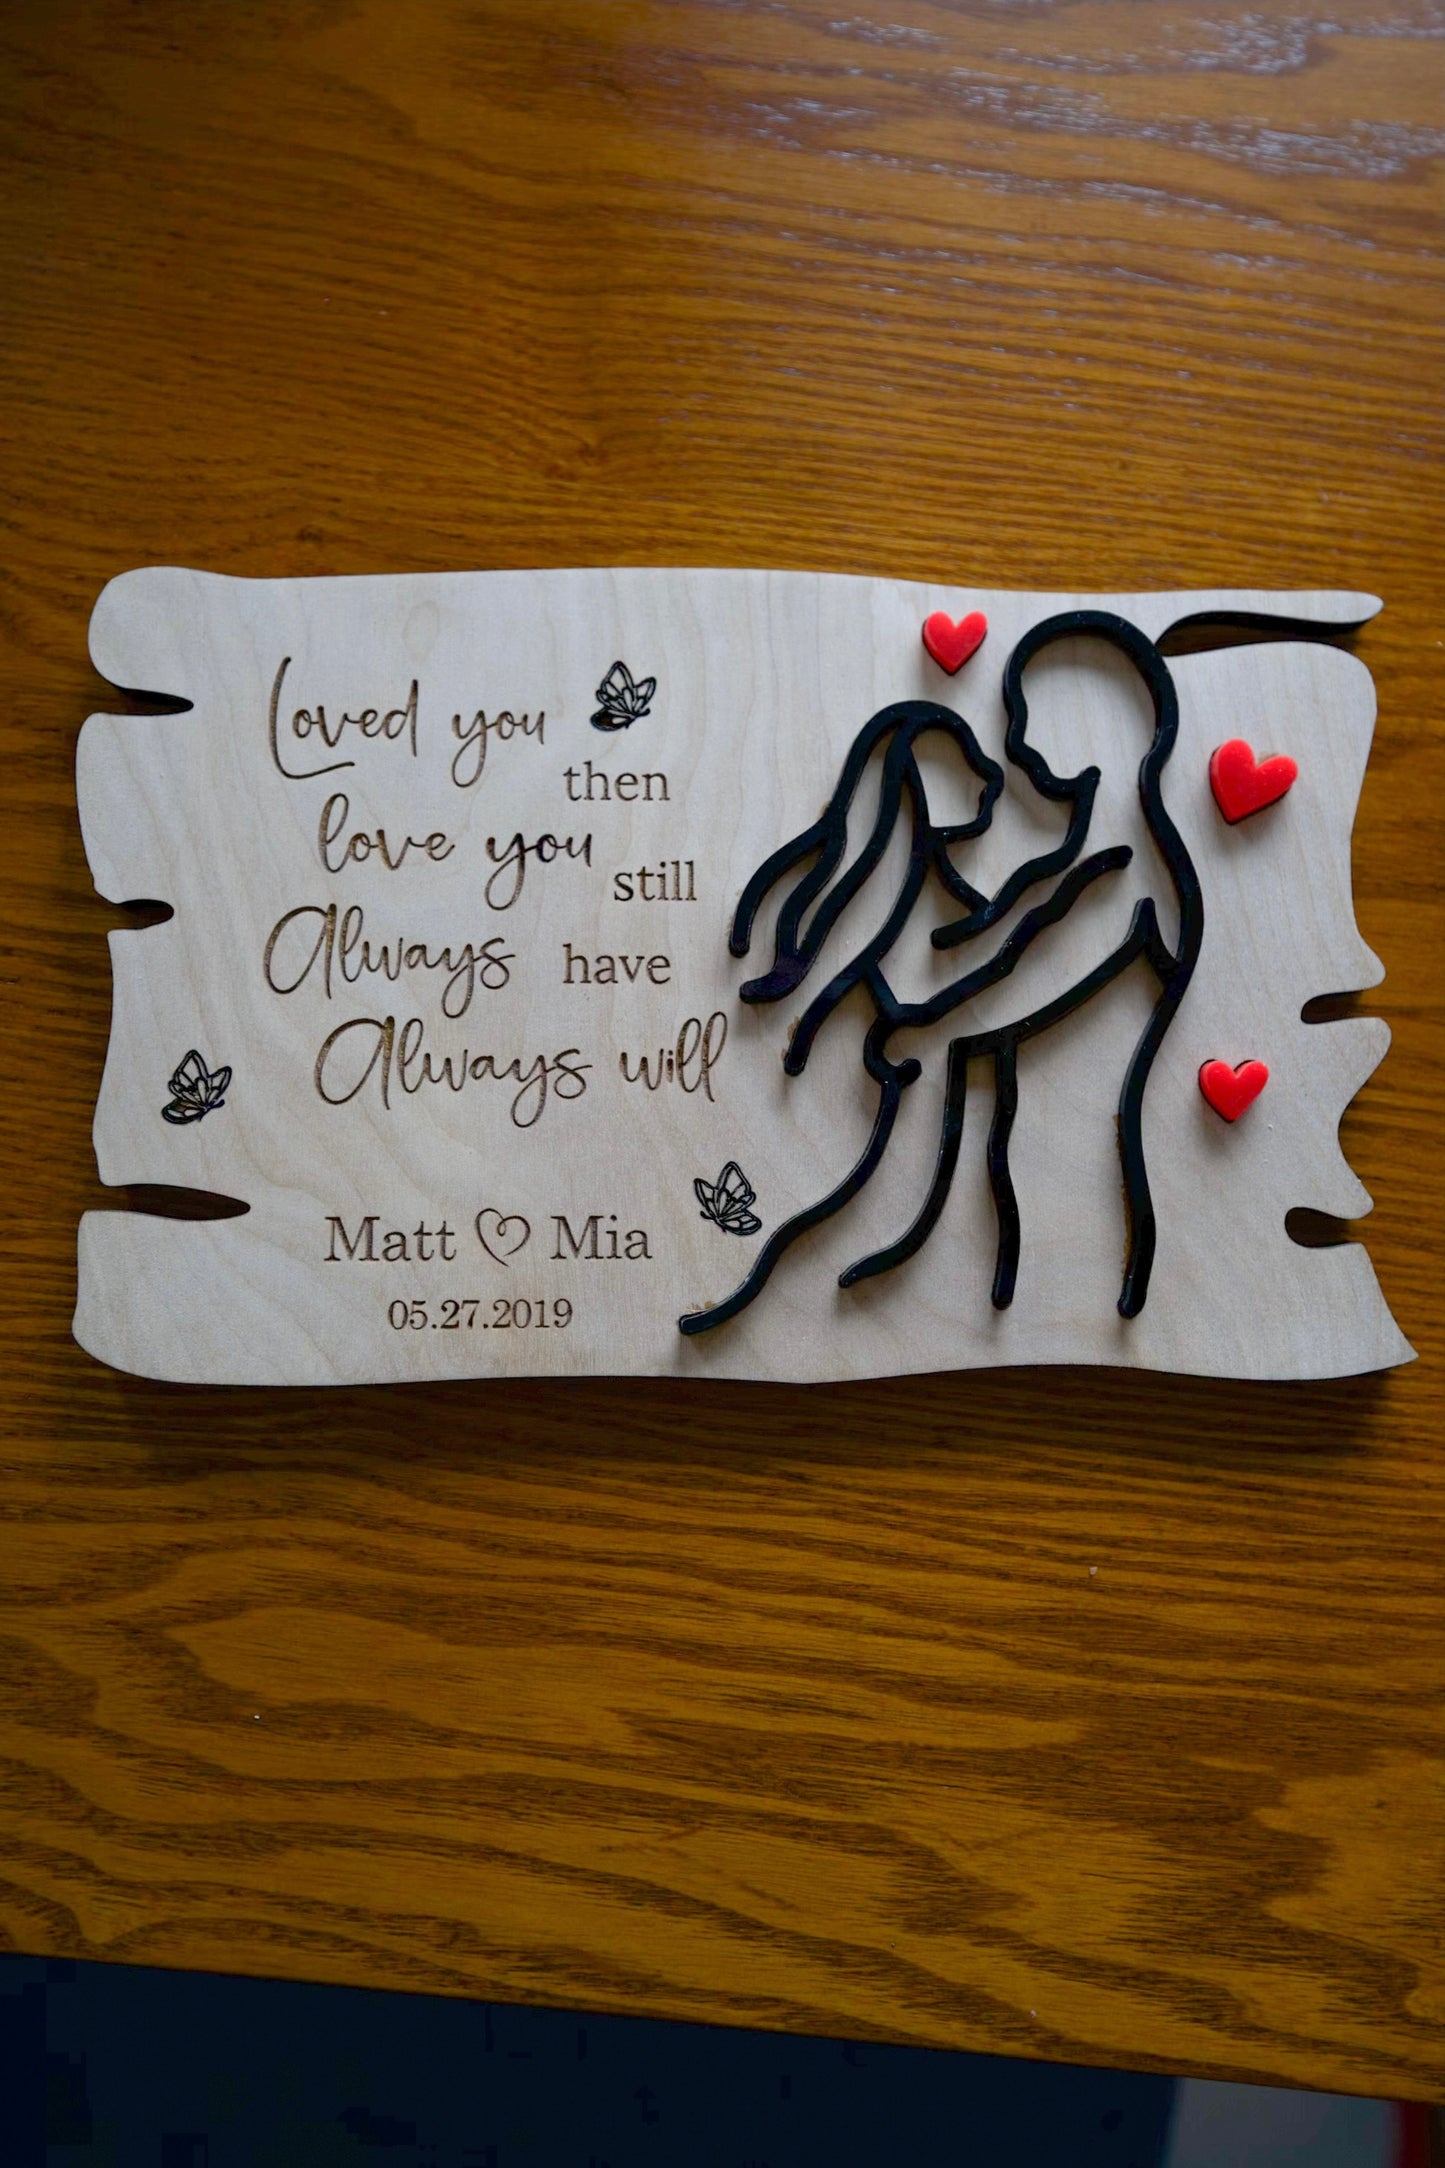 Loved you
then
love you
still
Always have
Always will
Matt Mia
05.27.2019